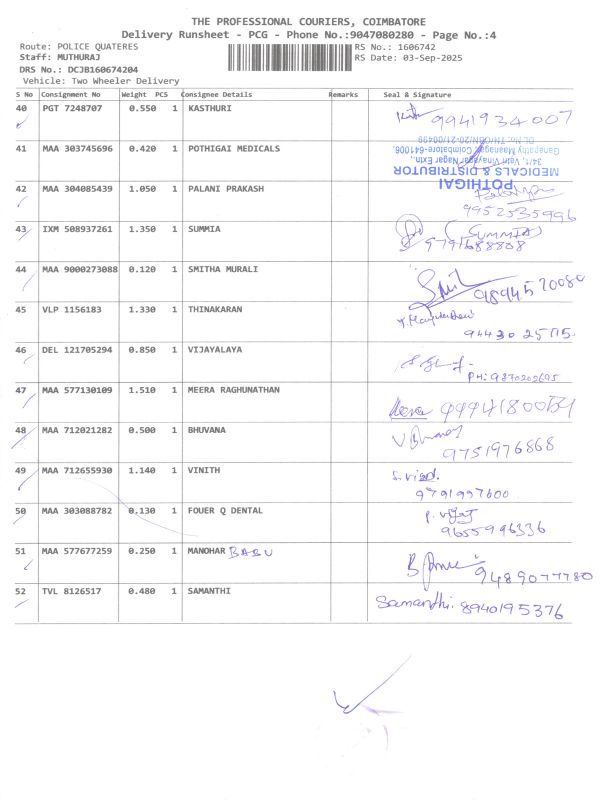 THE PROFESSIONAL COURIERS, COIMBATORE
Delivery Runsheet - PCG - Phone No.:9047080280 - Page No.:4
Route: POLICE QUATERES
RS No.: 1606742
Staff: MUTHURAJ
RS Date: 03-Sep-2025
DRS No.: DCJB160674204
Vehicle: Two Wheeler Delivery
S No Consignment No Weight PCS Consignee Details Remarks Seal & Signature
40 PGT 7248707 0.550 1 KASTHURI 9941934007
41 MAA 303745696 0.420 1 POTHIGAI MEDICALS
POTHIGAI
MEDICALS & DISTRIBUTOR
34/1, Vatri Vinayagar Nagar Extn.,
Ganapathy Maanagar, Coimbatore-641006.
42 MAA 304085439 1.050 1 PALANI PRAKASH 9952535996
43 IXM 508937261 1.350 1 SUMMIA (SUMMIA) 9791688808
44 MAA 9000273088 0.120 1 SMITHA MURALI 9894570080
45 VLP 1156183 1.330 1 THINAKARAN
46 DEL 121705294 0.850 1 VIJAYALAYA PH: 9870202695
47 MAA 577130109 1.510 1 MEERA RAGHUNATHAN Meera
48 MAA 712021282 0.500 1 BHUVANA 9751976868
49 MAA 712655930 1.140 1 VINITH 9791997600
50 MAA 303088782 0.130 1 FOUER Q DENTAL 9655996336
51 MAA 577677259 0.250 1 MANOHAR BABU 9489077780
52 TVL 8126517 0.480 1 SAMANTHI Samanthi. 8940195376